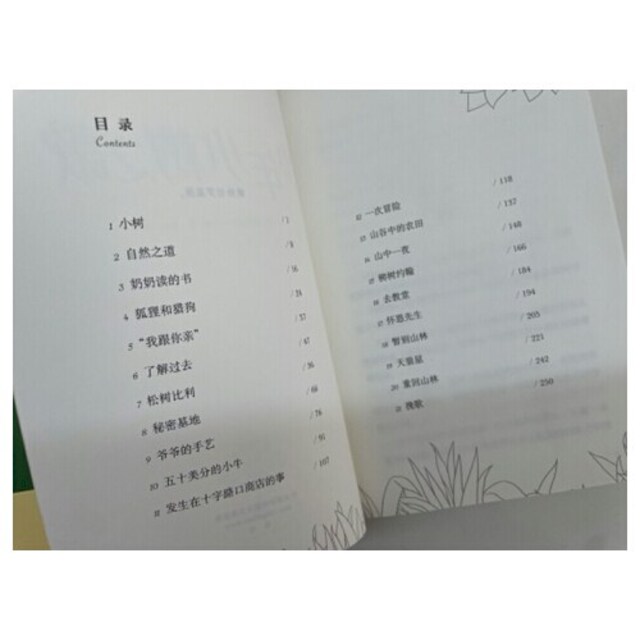 目录
Contents
1 小树 /1
2 自然之道 /8
3 奶奶读的书 /16
4 狐狸和猎狗 /24
5 “我跟你亲” /37
6 了解过去 /47
7 松树比利 /56
8 秘密基地 /66
9 爷爷的手艺 /76
10 五十美分的小牛 /91
11 发生在十字路口商店的事 /107
12 一次冒险 /118
13 山谷中的农田 /137
14 山中一夜 /148
15 柳树约翰 /166
16 去教堂 /184
17 怀恩先生 /194
18 暂别山林 /205
19 天狼星 /221
20 重回山林 /242
21 挽歌 /250